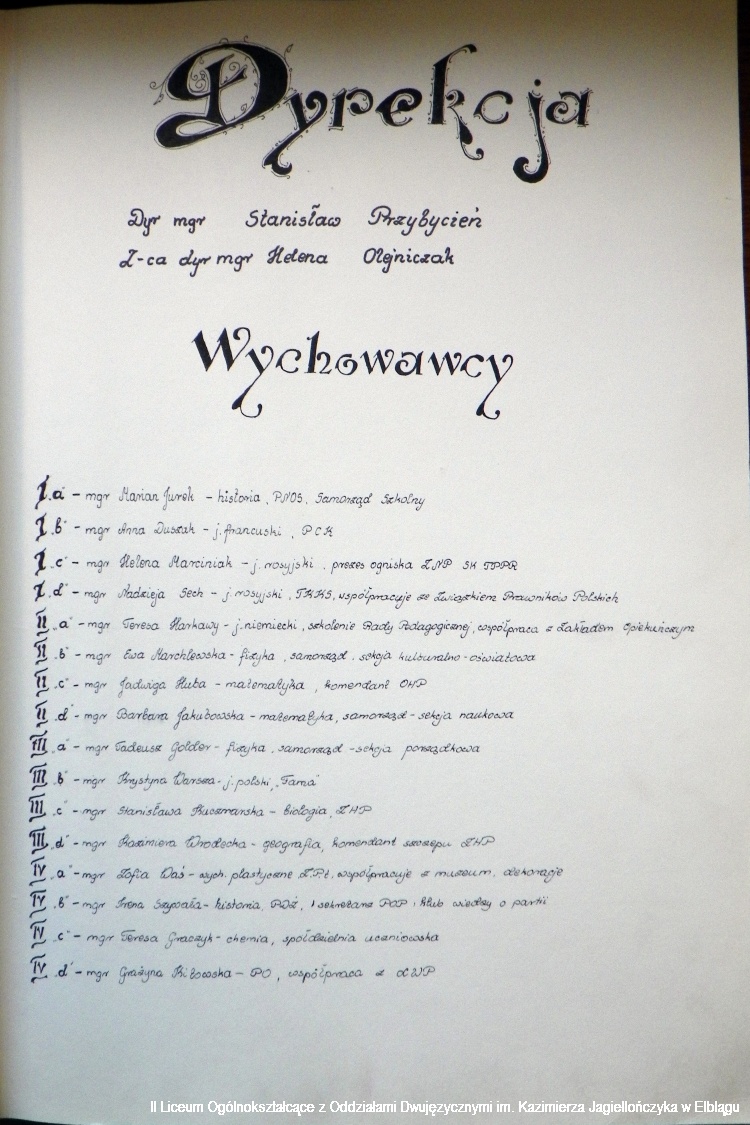 Dyrekcja
Dyr mgr Stanisław Przybycień
Z-ca dyr mgr Helena Olejniczak
Wychowawcy
I "a" - mgr Marian Jurek - historia, PNOS, Samorząd Szkolny
I "b" - mgr Anna Duszak - j. francuski, PCK
I "c" - mgr Helena Marciniak - j. rosyjski, prezes ogniska ZNP SK TPPR
I "d" - mgr Nadzieja Sech - j. rosyjski, TKKS, współpracuje ze Związkiem Prawników Polskich
II "a" - mgr Teresa Harkawy - j. niemiecki, szkolenie Rady Pedagogicznej, współpraca z Zakładem Opiekuńczym
II "b" - mgr Ewa Marchlewska - fizyka, samorząd, sekcja kulturalno-oświatowa
II "c" - mgr Jadwiga Huba - matematyka, komendant OHP
II "d" - mgr Barbara Jakubowska - matematyka, samorząd - sekcja naukowa
III "a" - mgr Tadeusz Golder - fizyka, samorząd - sekcja porządkowa
III "b" - mgr Krystyna Warsza - j. polski, "Fama"
III "c" - mgr Stanisława Kuczmarska - biologia, ZHP
III "d" - mgr Kazimiera Wrodecka - geografia, komendant szczepu ZHP
IV "a" - mgr Zofia Waś - wych. plastyczne Z.P.t, współpracuje z muzeum, dekoracje
IV "b" - mgr Irena Szypała - historia, PDŻ, I sekretarz POP, klub wiedzy o partii
IV "c" - mgr Teresa Graczyk - chemia, spółdzielnia uczniowska
IV "d" - mgr Grażyna - PO, współpraca z LWP
II Liceum Ogólnokształcące z Oddziałami Dwujęzycznymi im. Kazimierza Jagiellończyka w Elblągu